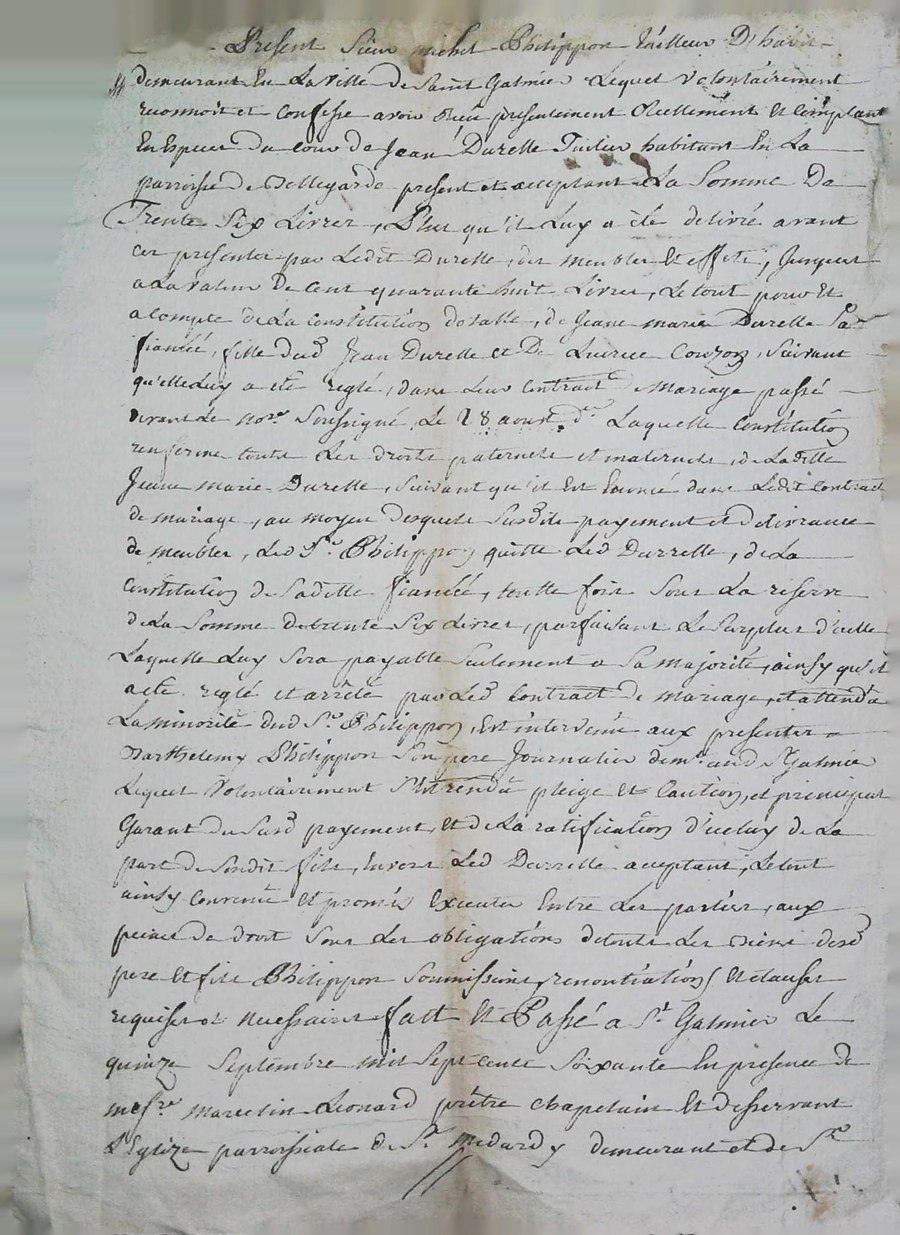 Present Sieur michel Philippon tailleur D'habit
demeurant En La ville de Saint Galmier Lequel volontairement
reconnoit et confesse avoir Reçu presentement Reellement Et comptant
En Espece du cour de Jean Durelle Tuilier habitant En La
parroisse de Bellegarde present et acceptant La Somme De
Trente Six Livres, Plus qu'il Luy a été delivré avant
ces presentes par Ledit Durelle, des meubles Et effets, Jusques
a La valeur De cent quarante huit Livres, Le tout pour Et
a compte de La Constitution dotalle, de Jeanne marie Durelle Sa
fiancée, fille dud Jean Durelle et De Lucrece Couzon, Suivant
qu'elle Luy a été reglé, dans Leur Contract Mariage passé
devant Le nore Soussigné, Le 28 aoust dr Laquelle Constitution
renferme touts Les droits paternels et maternels, de Ladite
Jeanne marie Durelle, Suivant qu'il Est Enoncé dans Ledit Contract
de mariage, au moyen desquels Susdits payement et delivrance
de meubles, Led Sr Philippon quitte Led Durrelle, de La
Constitution de Sadite fiancée, toutte fois Sous La reserve
de La Somme de trente Six Livres, parfaisant Le Surplus d'icelle
Laquelle Luy Sera payable Seulement a Sa Majorité, ainsy qu'il
a été reglé et arrêté par Led Contract De mariage, et attendu
La minorité dud Sr Philippon, Est intervenu aux presentes
Barthelemy Philippon Son pere Journalier demt aud St Galmier
Lequel Volontairement S'est rendu pleige Et Caution, et principal
Garant du Susd payement, Et de La ratification d'iceluy de La
part de Sondit fils, Envers Led Durrelle acceptant, Le tout
ainsy Convenu Et promis Executer Entre Les parties, aux
peines de droit Sous Les obligations de touts Les Biens desd
pere Et fils Philippon Soumissions, renontiations Et clauses
requises et necessaires fait Et Passé a St Galmier Le
quinze Septembre mil Sept cents Soixante En presence de
messre Marcelin Leonard prêtre chapelain Et desservant
L'Eglize parroissiale de St Medard y demeurant et de Sr